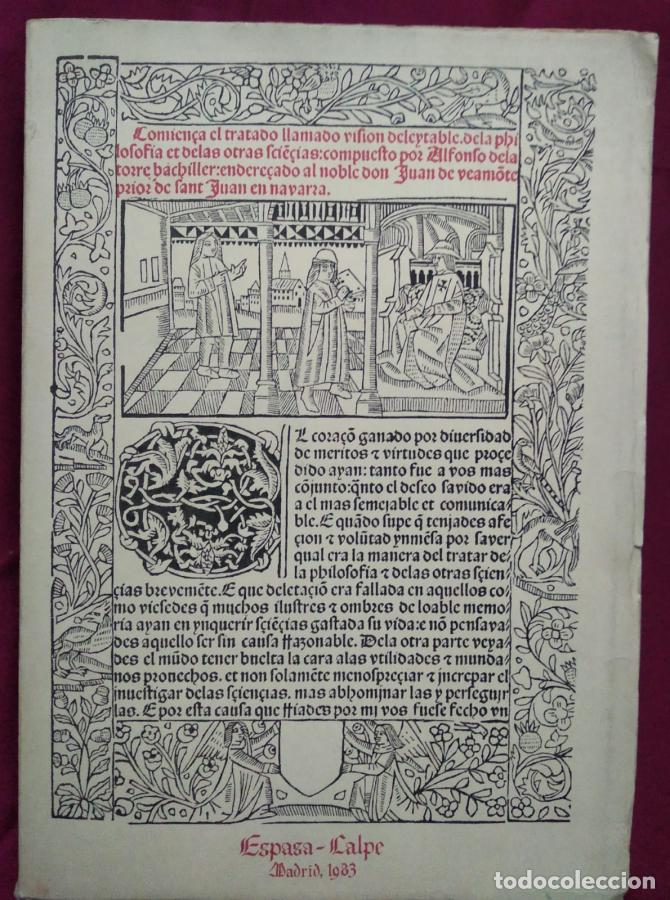 Comiença el tratado llamado vision deleytable. dela phi
losofia et delas otras sciẽçias: compuesto por Alfonso dela
torre bachiller: endereçado al noble don Juan de veamõte
prior de sant Juan en navarra.
EL coraçõ ganado por diuersidad
de meritos ⁊ virtudes que proçe
dido ayan: tanto fue a vos mas
cõjunto: q̃nto el deseo sauido era
a el mas semejable et comunica
ble. E quãdo supe q̃ teniades afe
çion ⁊ volũtad ynmẽsa por saver
qual era la manera del tratar de
la philosofia ⁊ delas otras sçien
çias brevemẽte. E que deletaçiõ era fallada en aquellos co
mo viesedes q̃ muchos ilustres ⁊ ombres de loable memo
ria ayan en ynquerir sçiẽçias gastada su vida: e nõ pensava
des aquello ser sin causa rrazonable. Dela otra parte veya
des el mũdo tener buelta la cara alas vtilidades ⁊ munda
nos prouechos. et non solamẽte menospreçiar ⁊ jncrepar el
jnuestigar delas sçiençias. mas abhominar las y perseguir
las. E por esta causa que rriades por mi vos fuese fecho vn
Espasa-Calpe
Madrid, 1983
todocoleccion